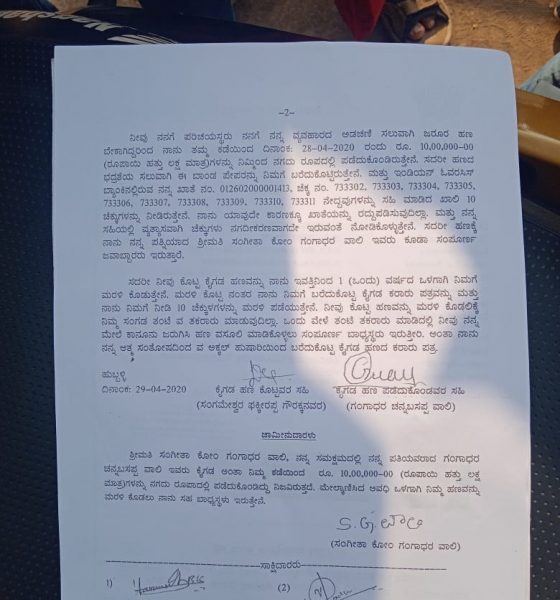 –2–
ನೀವು ನನಗೆ ಪರಿಚಯಸ್ಥರು ನನಗೆ ನನ್ನ ವ್ಯವಹಾರದ ಅಡಚಣಿ ಸಲುವಾಗಿ ಜರೂರ ಹಣ
ಬೇಕಾಗಿದ್ದರಿಂದ ನಾನು ತಮ್ಮ ಕಡೆಯಿಂದ ದಿನಾಂಕ: 28-04-2020 ರಂದು ರೂ. 10,00,000-00
(ರೂಪಾಯಿ ಹತ್ತು ಲಕ್ಷ ಮಾತ್ರ)ಗಳನ್ನು ನಿಮ್ಮಿಂದ ನಗದು ರೂಪದಲ್ಲಿ ಪಡೆದುಕೊಂಡಿರುತ್ತೇನೆ. ಸದರೀ ಹಣದ
ಭದ್ರತೆಯ ಸಲುವಾಗಿ ಈ ಬಾಂಡ ಪೇಪರನ್ನು ನಿಮಗೆ ಬರೆದುಕೊಟ್ಟಿರುತ್ತೇನೆ. ಮತ್ತು ಇಂಡಿಯನ್ ಓವರಸಿಸ್
ಬ್ಯಾಂಕಿನಲ್ಲಿರುವ ನನ್ನ ಖಾತೆ ನಂ. 012602000001413, ಚೆಕ್ಕ ನಂ. 733302, 733303, 733304, 733305,
733306, 733307, 733308, 733309, 733310, 733311 ನೇದ್ದವುಗಳನ್ನು ಸಹಿ ಮಾಡಿದ ಖಾಲಿ 10
ಚೆಕ್ಕುಗಳನ್ನು ನೀಡಿರುತ್ತೇನೆ. ನಾನು ಯಾವುದೇ ಕಾರಣಕ್ಕೂ ಖಾತೆಯನ್ನು ರದ್ದುಪಡಿಸುವುದಿಲ್ಲಾ. ಮತ್ತು ನನ್ನ
ಸಹಿಯಲ್ಲಿ ವ್ಯತ್ಯಾಸವಾಗಿ ಚೆಕ್ಕುಗಳು ನಗದೀಕರಣವಾಗದೇ ಇರುವಂತೆ ನೋಡಿಕೊಳ್ಳುತ್ತೇನೆ. ಸದರೀ ಹಣಕ್ಕೆ
ನಾನು ನನ್ನ ಪತ್ನಿಯಾದ ಶ್ರೀಮತಿ ಸಂಗೀತಾ ಕೋಂ ಗಂಗಾಧರ ವಾಲಿ ಇವರು ಕೂಡಾ ಸಂಪೂರ್ಣ
ಜವಾಬ್ದಾರರು ಇರುತ್ತಾರೆ.
ಸದರೀ ನೀವು ಕೊಟ್ಟ ಕೈಗಡ ಹಣವನ್ನು ನಾನು ಇವತ್ತಿನಿಂದ 1 (ಒಂದು) ವರ್ಷದ ಒಳಗಾಗಿ ನಿಮಗೆ
ಮರಳಿ ಕೊಡುತ್ತೇನೆ. ಮರಳಿ ಕೊಟ್ಟ ನಂತರ ನಾನು ನಿಮಗೆ ಬರೆದುಕೊಟ್ಟ ಕೈಗಡ ಕರಾರು ಪತ್ರವನ್ನು ಮತ್ತು
ನಾನು ನಿಮಗೆ ನೀಡಿ 10 ಚೆಕ್ಕುಗಳನ್ನು ಮರಳಿ ಪಡೆಯುತ್ತೇನೆ. ನೀವು ಕೊಟ್ಟ ಹಣವನ್ನು ಮರಳಿ ಕೊಡಲಿಕ್ಕೆ
ನಿಮ್ಮ ಸಂಗಡ ತಂಟೆ ವ ತಕರಾರು ಮಾಡುವುದಿಲ್ಲಾ. ಒಂದು ವೇಳೆ ತಂಟೆ ತಕರಾರು ಮಾಡಿದಲ್ಲಿ ನೀವು ನನ್ನ
ಮೇಲೆ ಕಾನೂನು ಜರುಗಿಸಿ ಹಣ ವಸೂಲಿ ಮಾಡಿಕೊಳ್ಳಲು ಸಂಪೂರ್ಣ ಮಾಧ್ಯಸ್ಥರು ಇರುತ್ತೀರಿ. ಅಂತಾ ನಾನು
ನನ್ನ ಆತ್ಮ ಸಂತೋಷದಿಂದ ವ ಅಕ್ಕಲ್ ಹುಷಾರಿಯಿಂದ ಬರೆದುಕೊಟ್ಟ ಕೈಗಡ ಹಣದ ಕರಾರು ಪತ್ರ.
ಹುಬ್ಬಳ್ಳಿ
ದಿನಾಂಕ: 29-04-2020 ಕೈಗಡ ಹಣ ಕೊಟ್ಟವರ ಸಹಿ ಕೈಗಡ ಹಣ ಪಡೆದುಕೊಂಡವರ ಸಹಿ
(ಸಂಗಮೇಶ್ವರ ಫಕ್ಕೀರಪ್ಪ ಗೌರಕ್ಕನವರ) (ಗಂಗಾಧರ ಚನ್ನಬಸಪ್ಪ ವಾಲಿ)
ಜಾಮೀನುದಾರಳು
ಶ್ರೀಮತಿ ಸಂಗೀತಾ ಕೋಂ ಗಂಗಾಧರ ವಾಲಿ, ನನ್ನ ಸಮಕ್ಷಮದಲ್ಲಿ ನನ್ನ ಪತಿಯವರಾದ ಗಂಗಾಧರ
ಚನ್ನಬಸಪ್ಪ ವಾಲಿ ಇವರು ಕೈಗಡ ಅಂತಾ ನಿಮ್ಮ ಕಡೆಯಿಂದ ರೂ. 10,00,000-00 (ರೂಪಾಯಿ ಹತ್ತು ಲಕ್ಷ
ಮಾತ್ರ)ಗಳನ್ನು ನಗದು ರೂಪಾದಲ್ಲಿ ಪಡೆದುಕೊಂಡಿದ್ದು ನಿಜವಿರುತ್ತದೆ. ಮೇಲ್ಕಾಣಿಸಿದ ಅವಧಿ ಒಳಗಾಗಿ ನಿಮ್ಮ ಹಣವನ್ನು
ಮರಳಿ ಕೊಡಲು ನಾನು ಸಹ ಬಾಧ್ಯಸ್ಥಳು ಇರುತ್ತೇನೆ.
S.G. ವಾಲಿ
(ಸಂಗೀತಾ ಕೋಂ ಗಂಗಾಧರ ವಾಲಿ)
ಸಾಕ್ಷಿದಾರರು
1) (2)